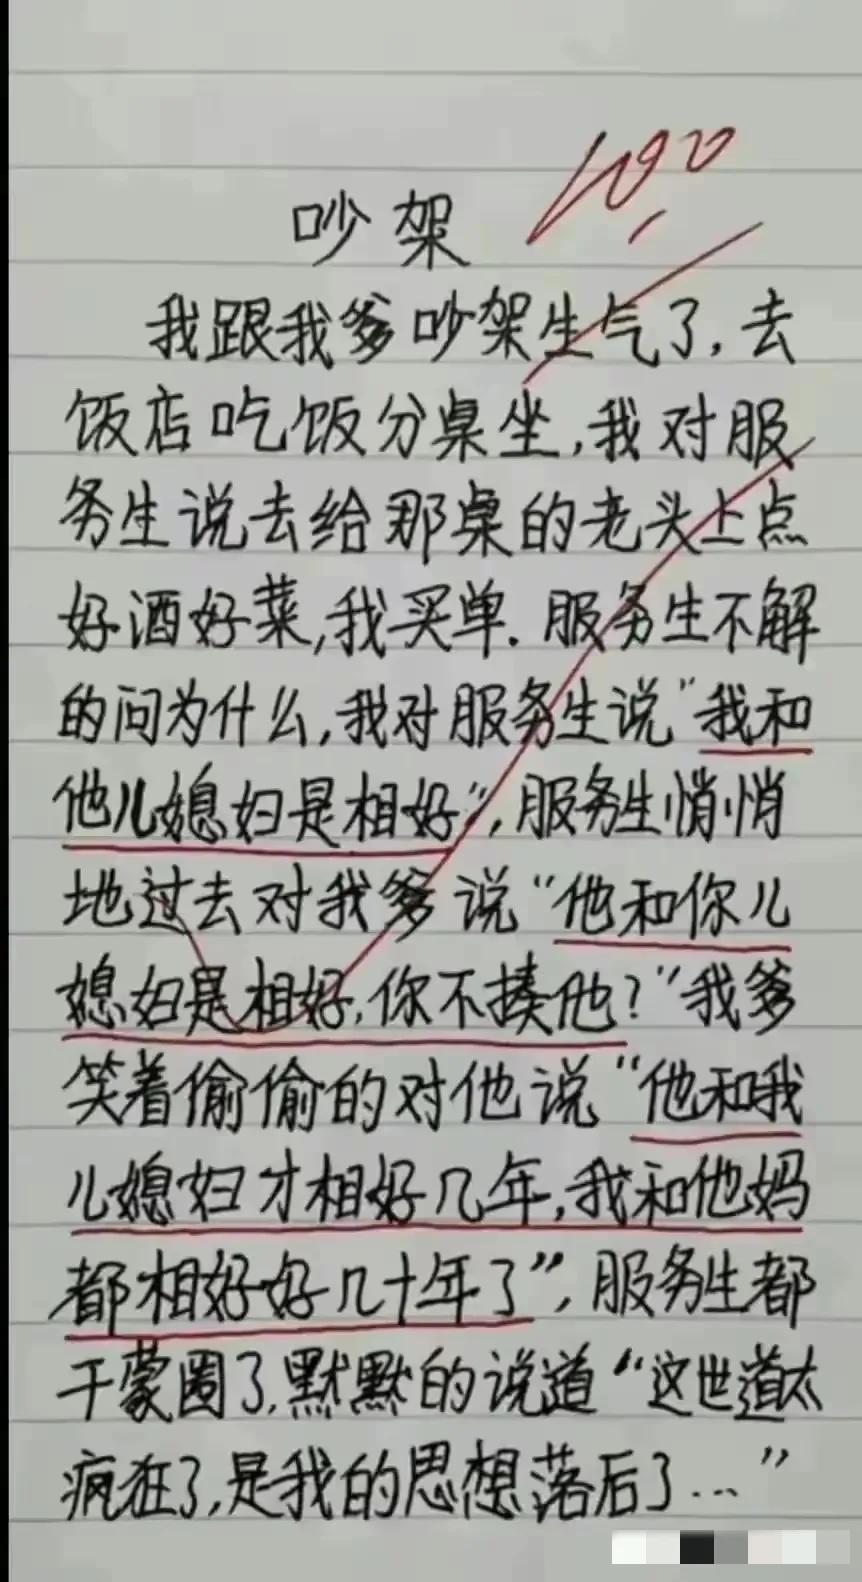 100
吵架
我跟我爹吵架生气了,去
饭店吃饭分桌坐,我对服
务生说去给那桌的老头上点
好酒好菜,我买单.服务生不解
的问为什么,我对服务生说“我和
他儿媳妇是相好”,服务生悄悄
地过去对我爹说“他和你儿
媳妇是相好,你不揍他?”我爹
笑着偷偷的对他说“他和我
儿媳妇才相好几年,我和他妈
都相好好几十年了”,服务生都
干蒙圈了,默默的说道“这世道太
疯狂了,是我的思想落后了...”